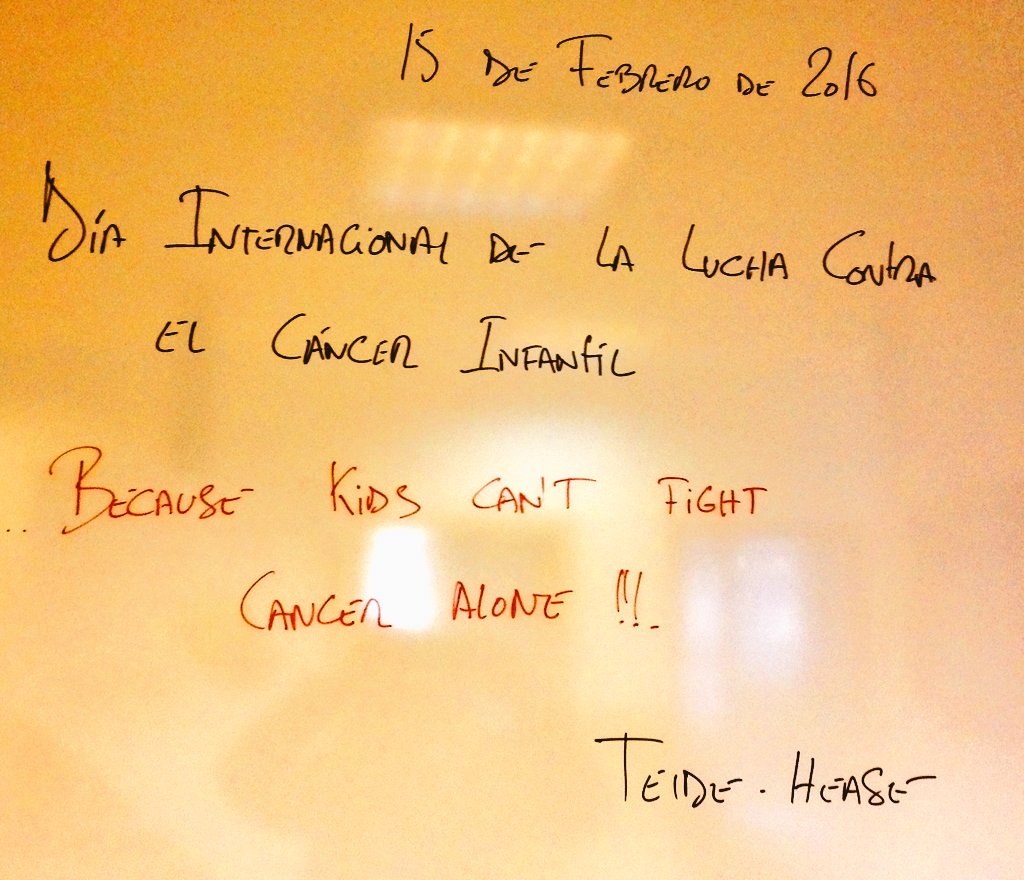 15 DE FEBRERO DE 2016
DÍA INTERNACIONAL DE LA LUCHA CONTRA
EL CÁNCER INFANTIL
.. BECAUSE KIDS CAN'T FIGHT
CANCER ALONE !!!.
TEIDE. HEASE